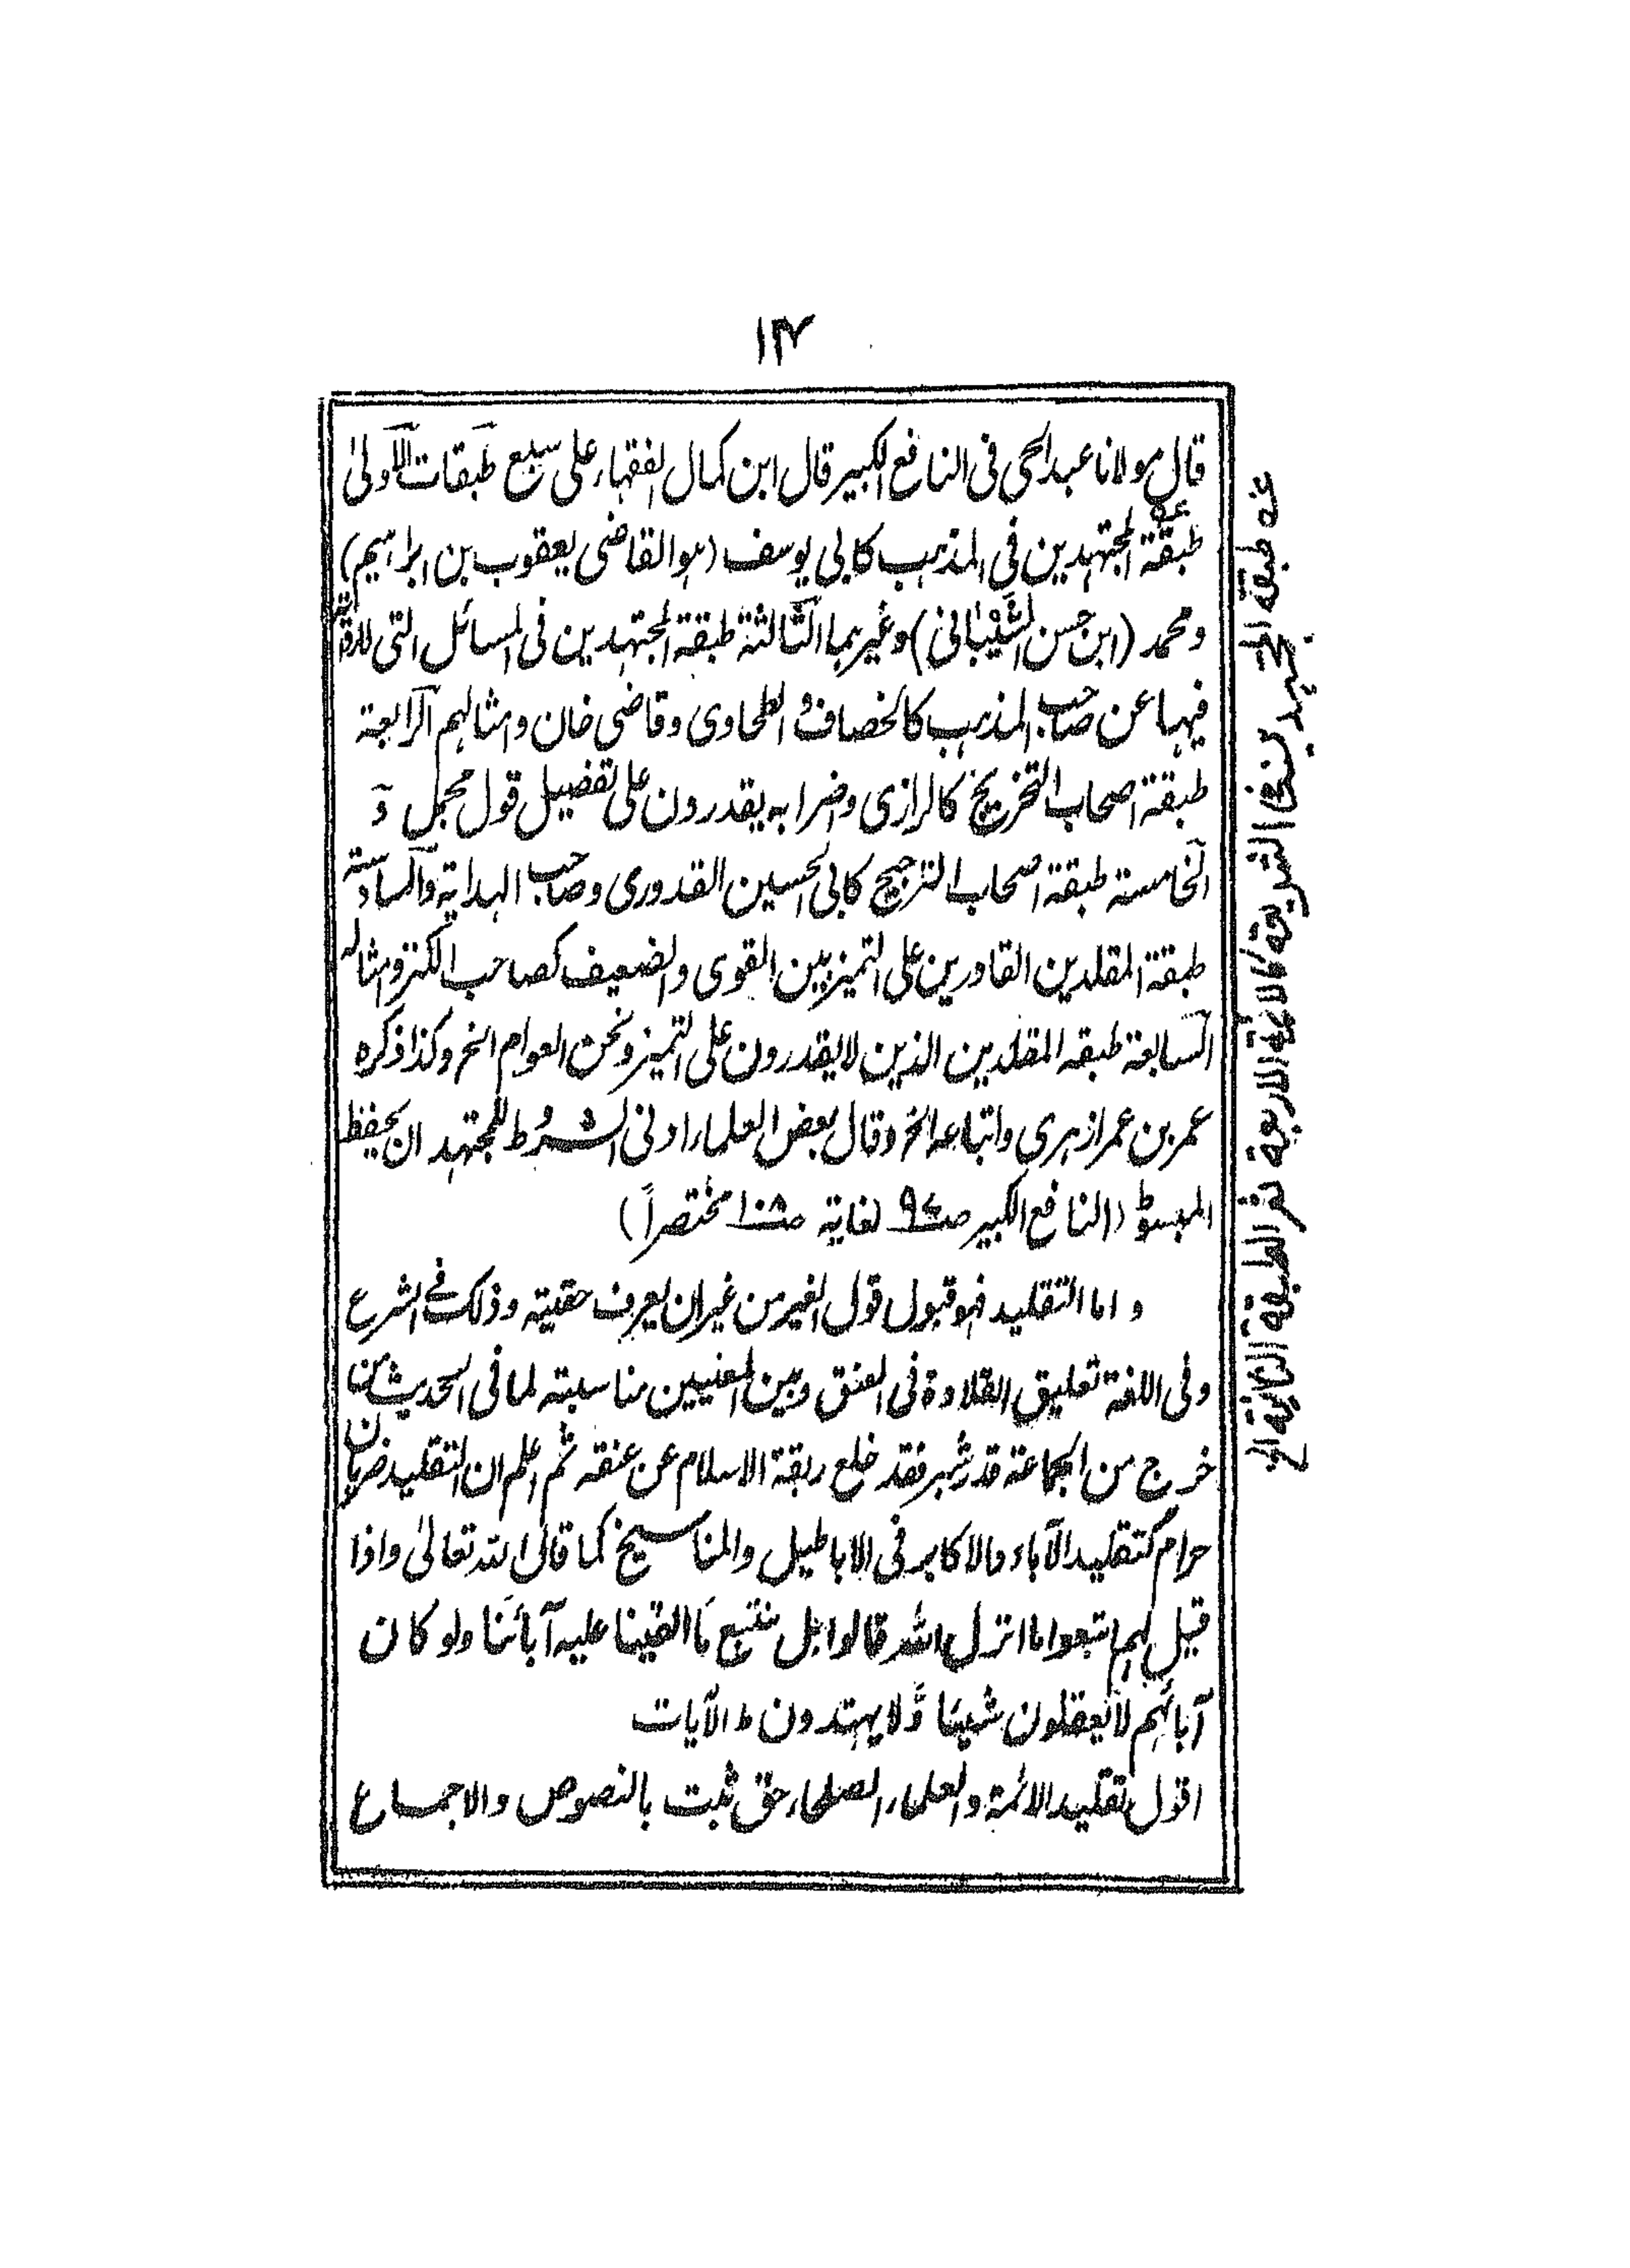 ۱۲۷
قال مولانا عبدالحی فی النافع الکبیر قال ابن کمال الفقهاء علی سبع طبقات الاولیٰ
طبقة المجتهدین فی المذهب کابی یوسف (هو القاضی یعقوب بن ابراهیم)
ومحمد (ابن حسن الشیبانی) وغیرهما الثالثة طبقة المجتهدین فی المسائل التی لا روایة
فیها عن صاحب المذهب کالخصاف والطحاوی وقاضی خان وامثالهم الرابعة
طبقة اصحاب التخریج کالرازی واضرابه یقدرون علی تفضیل قول مجمل و
الخامسة طبقة اصحاب الترجیح کابی الحسین القدوری وصاحب الهدایة والسادسة
طبقة المقلدین القادرین علی التمیز بین القوی والضعیف کصاحب الکنز وامثاله
السابعة طبقه المقلدین الذین لا یقدرون علی التمیز ونحن العوام الخ وکذا ذکره
عمر بن عمر ازهری واتباعه الخ وقال بعض العلماء ادنی الشروط للمجتهد ان یحفظ
المبسوط (النافع الکبیر ص۹۷ لغایة ص۱۰۸ مختصراً)
واما التقلید فهو قبول قول الغیر من غیر ان یعرف حقیته وذلک فی الشرع
وفی اللغة تعلیق القلادة فی العنق وبین المعنیین مناسبته لما فی الحدیث من
خرج من الجماعة قدر شبر فقد خلع ربقة الاسلام عن عنقه ثم اعلم ان التقلید ضربان
حرام کتقلید الآباء والاکابر فی الاباطیل والمناسیخ کما قال الله تعالیٰ واذا
قیل لهم اتبعوا ما انزل الله قالوا بل نتبع ما الفینا علیه آبائنا ولو کان
آبائهم لا یعقلون شیئا وّلا یهتدون ط الآیات
اقول تقلید الائمة والعلماء الصلحاء حق ثبت بالنصوص والاجماع
عه طبقة المجتهدین فی الشریعة کالائمة الاربعة ثم الطبقة الثانیة الخ